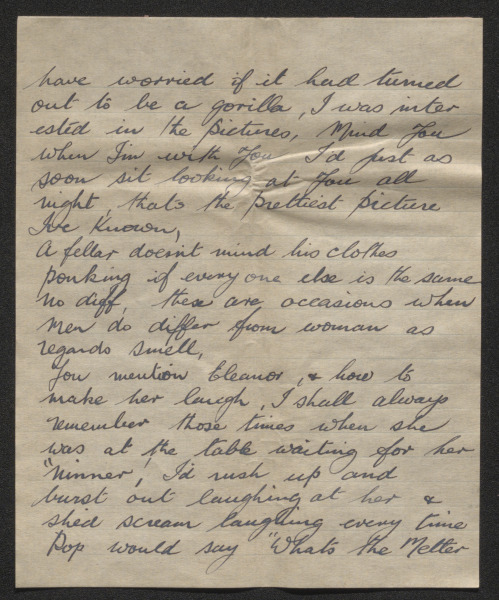 have worried if it had turned
out to be a gorilla, I was inter
ested in the pictures, Mind You
when I'm with You I'd just as
soon sit looking at You all
night, thats the prettiest picture
I've Known,
A fellar doesn't mind his clothes
ponking if every one else is the same
no diff, these are occasions when
men do differ from woman as
regards smell,
You mention Eleanor, & how to
make her laugh, I shall always
remember those times when she
was at the table waiting for her
"Ninner, I'd rush up and
burst out laughing at her &
she'd scream laughing every time
Pop would say "Whats the Metter